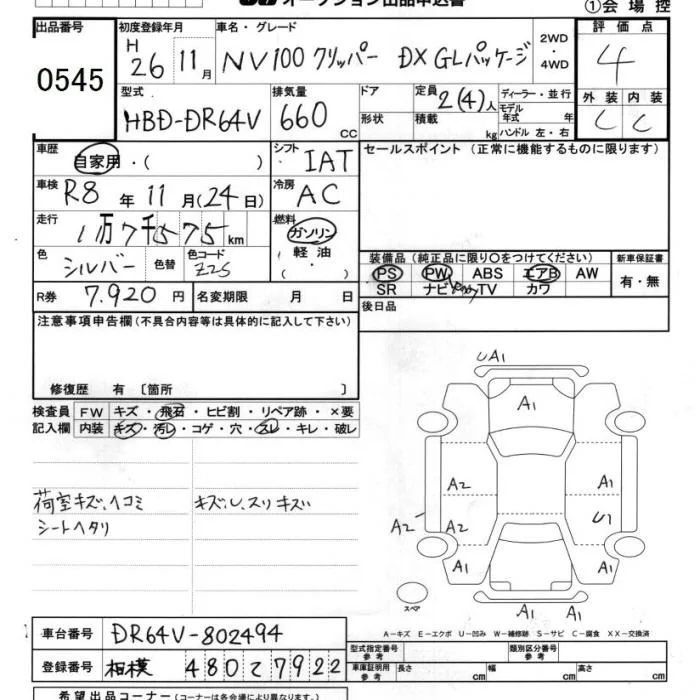 オークション出品申込書
①会場控
出品番号
0545
初度登録年月
H
26 11月
車名・グレード
NV100 クリッパー DX GLパッケージ
2WD
・
4WD
評価点
4
外装 内装
C C
型式
HBD-DR64V
排気量
660 cc
ドア
形状
定員 2(4)人
積載 kg
ディーラー・並行
モデル年式 年
ハンドル 左・右
車歴
自家用・( )
シフト
IAT
セールスポイント (正常に機能するものに限ります)
車検
R8 年 11 月(24日)
冷房
AC
走行
1万7千575km
燃料
ガソリン
軽油
・
( )
色
シルバー
色替
色コード
Z2S
装備品 (純正品に限り○をつけてください)
PS PW ABS エアB AW
SR ナビ TV カワ
新車保証書
有・無
R券 7,920 円
名変期限 月 日
後日品
注意事項申告欄 (不具合内容等は具体的に記入して下さい)
修復歴 有 [箇所 ]
検査員記入欄
FW キズ・飛石・ヒビ割・リペア跡・×要
内装 キズ・汚レ・コゲ・穴・スレ・キレ・破レ
荷室キズ、ヘコミ
シートヘタリ
キズ、U、スリキズ
UA1
A1
A2 A1
A2 A2 U1
A1 A1
A1 A1
スペア
A－キズ E－エクボ U－凹み W－補修跡 S－サビ C－腐食 XX－交換済
車台番号 DR64V-802494
登録番号 相模 480 て 7922
型式指定番号
類別区分番号
車庫証明用参考
長さ cm 幅 cm 高さ cm
希望出品コーナー (コーナーは各会場により異なります。)